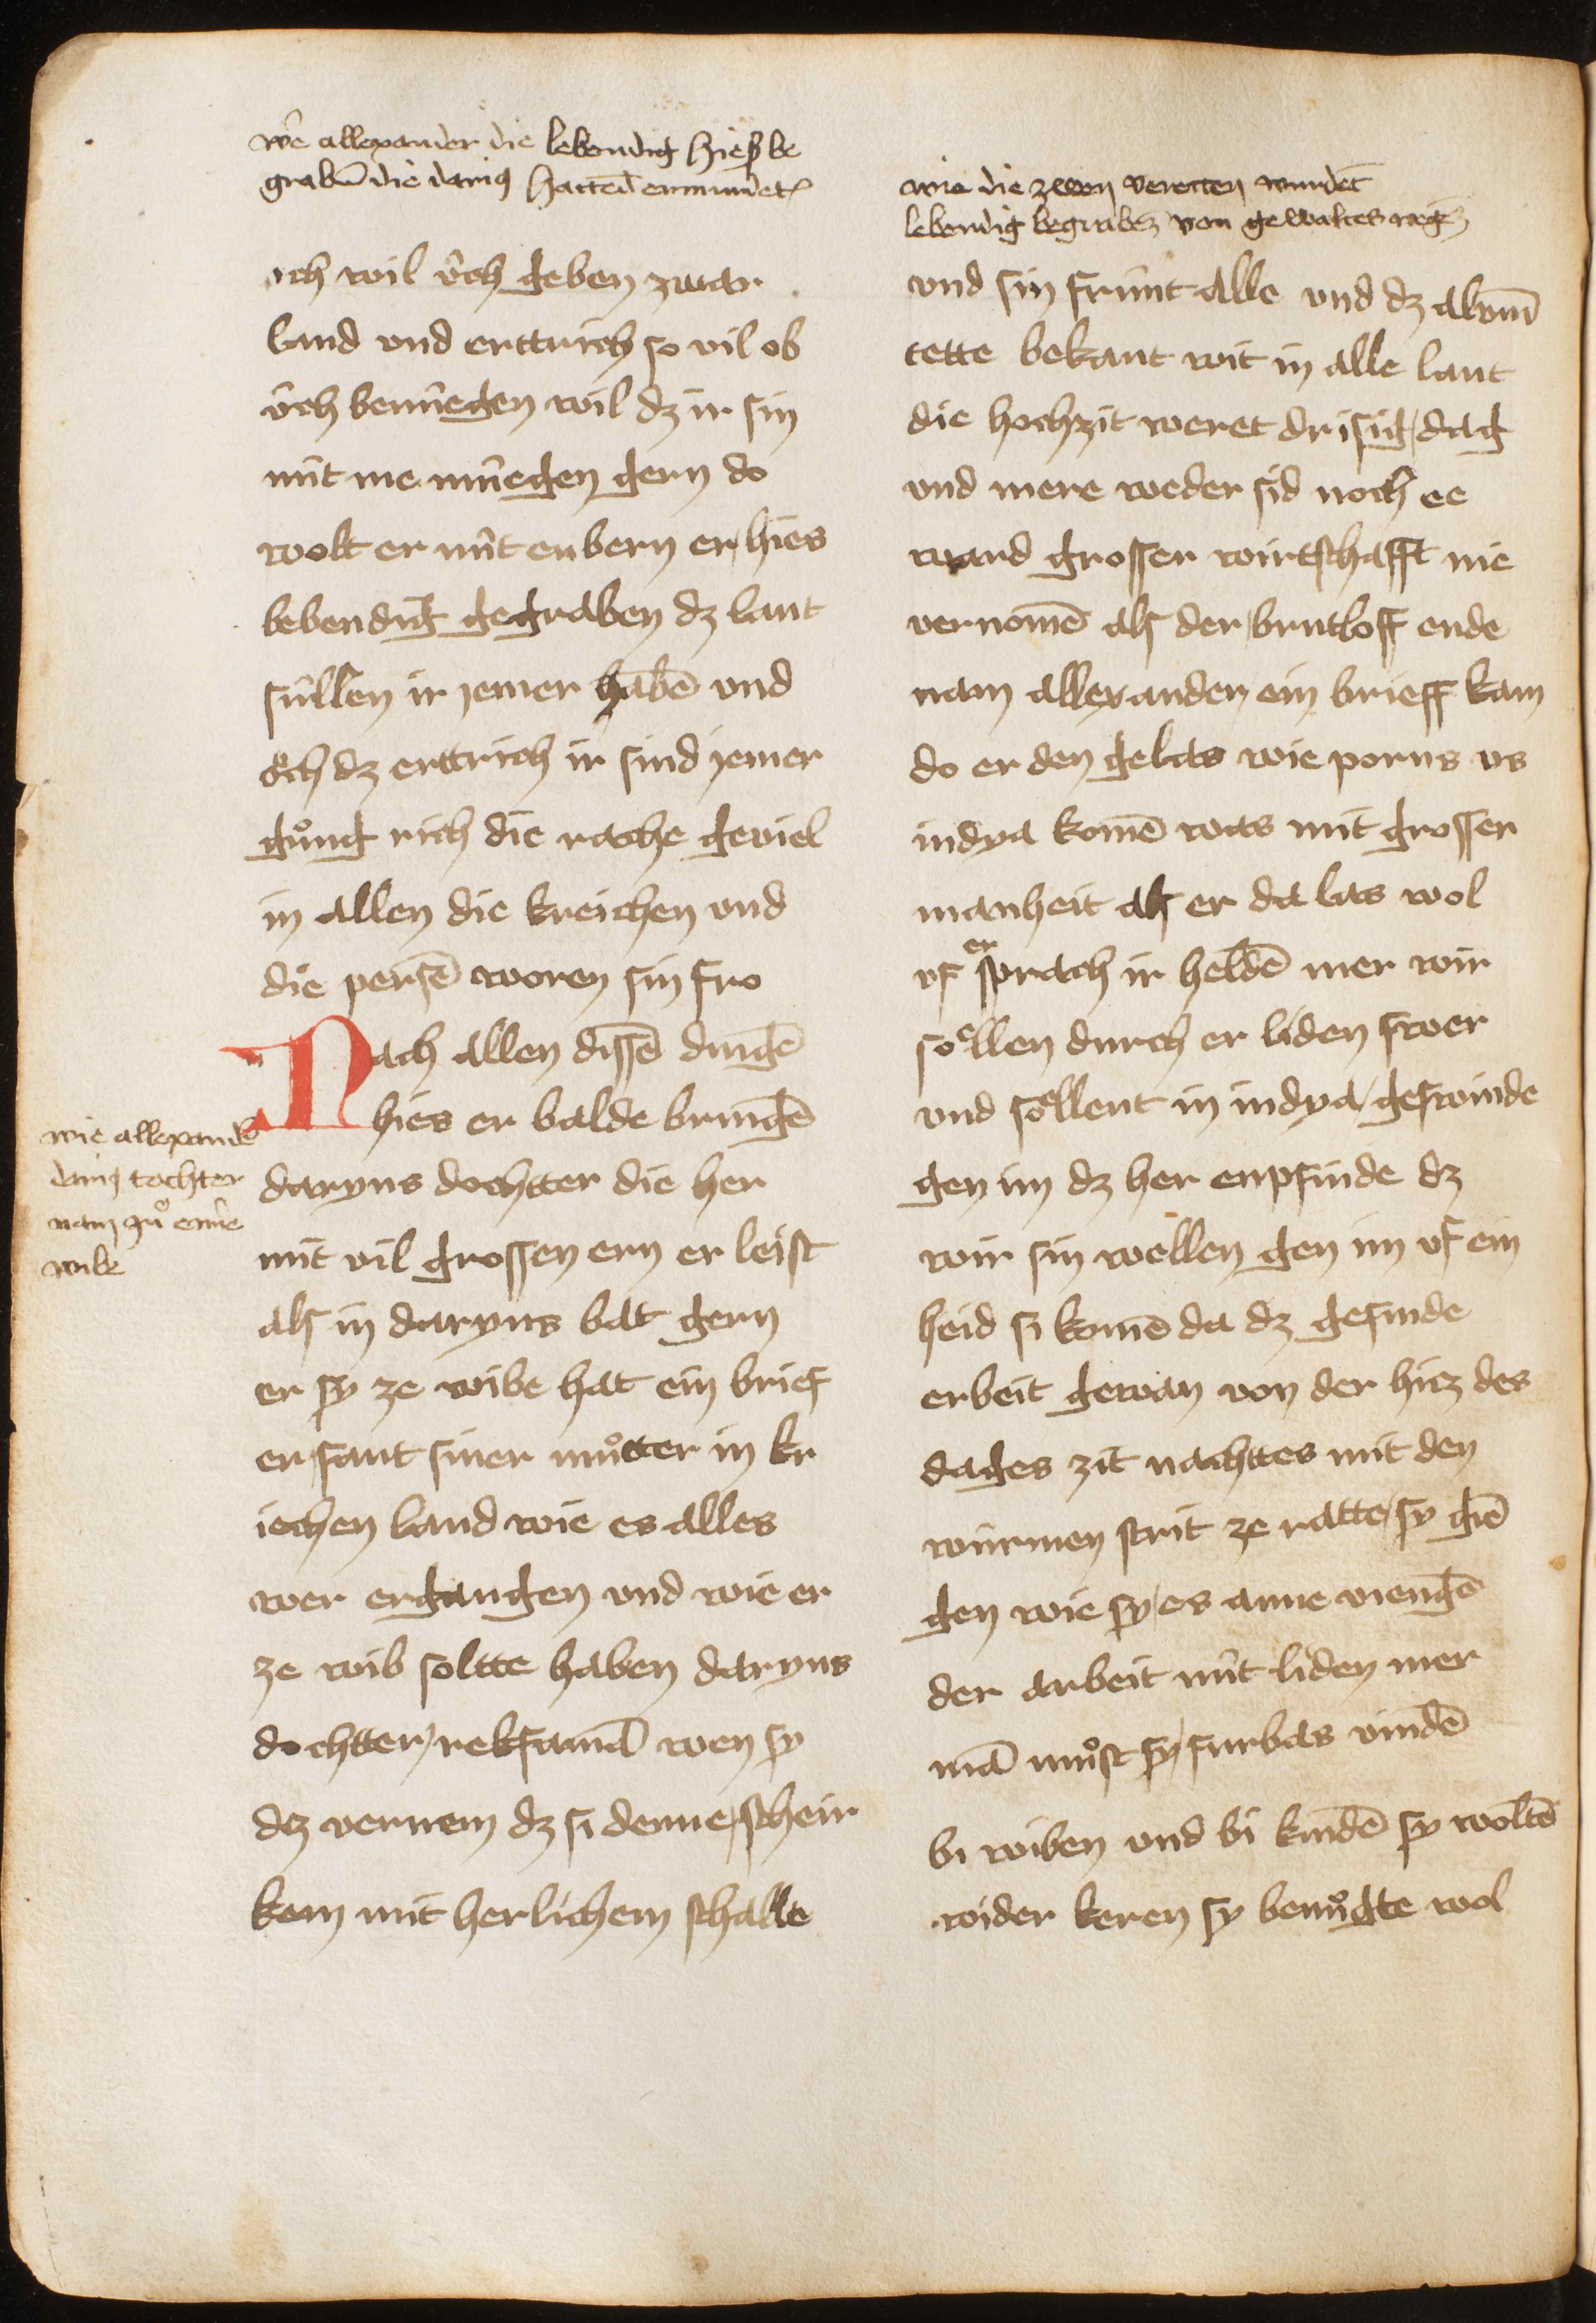 wie allexander die lebendig hies be
graben die darius hatten ermürdet
ich wil v̂ch geben zwar
land vnd erttrich so vil ob
v̂ch benûegen wil dz ir sin
nût me mûegen gern do
wolt er nût enbern er hies
bebendig gegraben dz lant
sûllen ir jemer habē vnd
o̊ch dz erttrich ir sind jemer
gůng rich die rache geviel
in allen die kreichen vnd
die persē woren sin fro
Nach allen dissē dingē
hies er balde bringē
daryus dochtter die her
mit vil grossen ern er leist
als in daryus bat gern
er sy ze wibe hat ein brief
er sant siner můtter in kr
iechen land wie es alles
wer ergangen vnd wie er
ze wib soltte haben daryus
dochtter reksamā wen sy
dz vernem dz si denne scheir
kem mit herlichem schalle
wie allexander
darius tochter
nam zů eime
wibe
wie die zwen veretten wurdet
lebendig begraben von gewaltes wegē
vnd sin frûnt alle vnd dz alvm̄
tette bekant wit in alle lant
die hochzit weret drisig dag
vnd mere weder sid noch ee
ward grosser wirtschafft nie
vernomē als der brutloff ende
nam allexander ein brieff kam
do er den gelas wie porus vs
indya komē was mit grosser
manheit als er da las wol
vf er sprach ir heldē mer wir
soͤllen durch er liden swer
vnd soͤllent in indya geswinde
gen im dz her enpfinde dz
wir sin wellen gen im vf ein
heid si komē da dz gesinde
erbeit gewan von der hicz des
dages zit nachttes mit den
würmen strit ze ratte sy giē
gen wie sy es anne viengē
der arbeit nût liden mer
mā můst sy furbas vindē
bi wiben vnd bi kindē sy woltē
wider keren sy benůgte wol